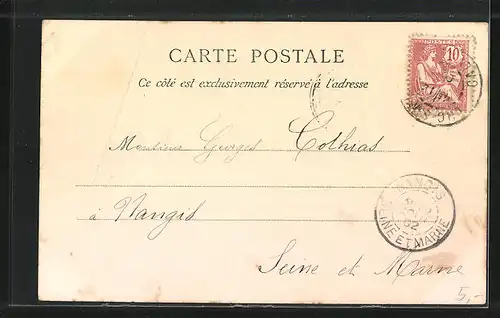 CARTE POSTALE
10
POSTES
Ce côté est exclusivement réservé à l'adresse
Monsieur Georges Cothias
à Nangis
NANGIS
02
SEINE ET MARNE
Seine et Marne
5,-